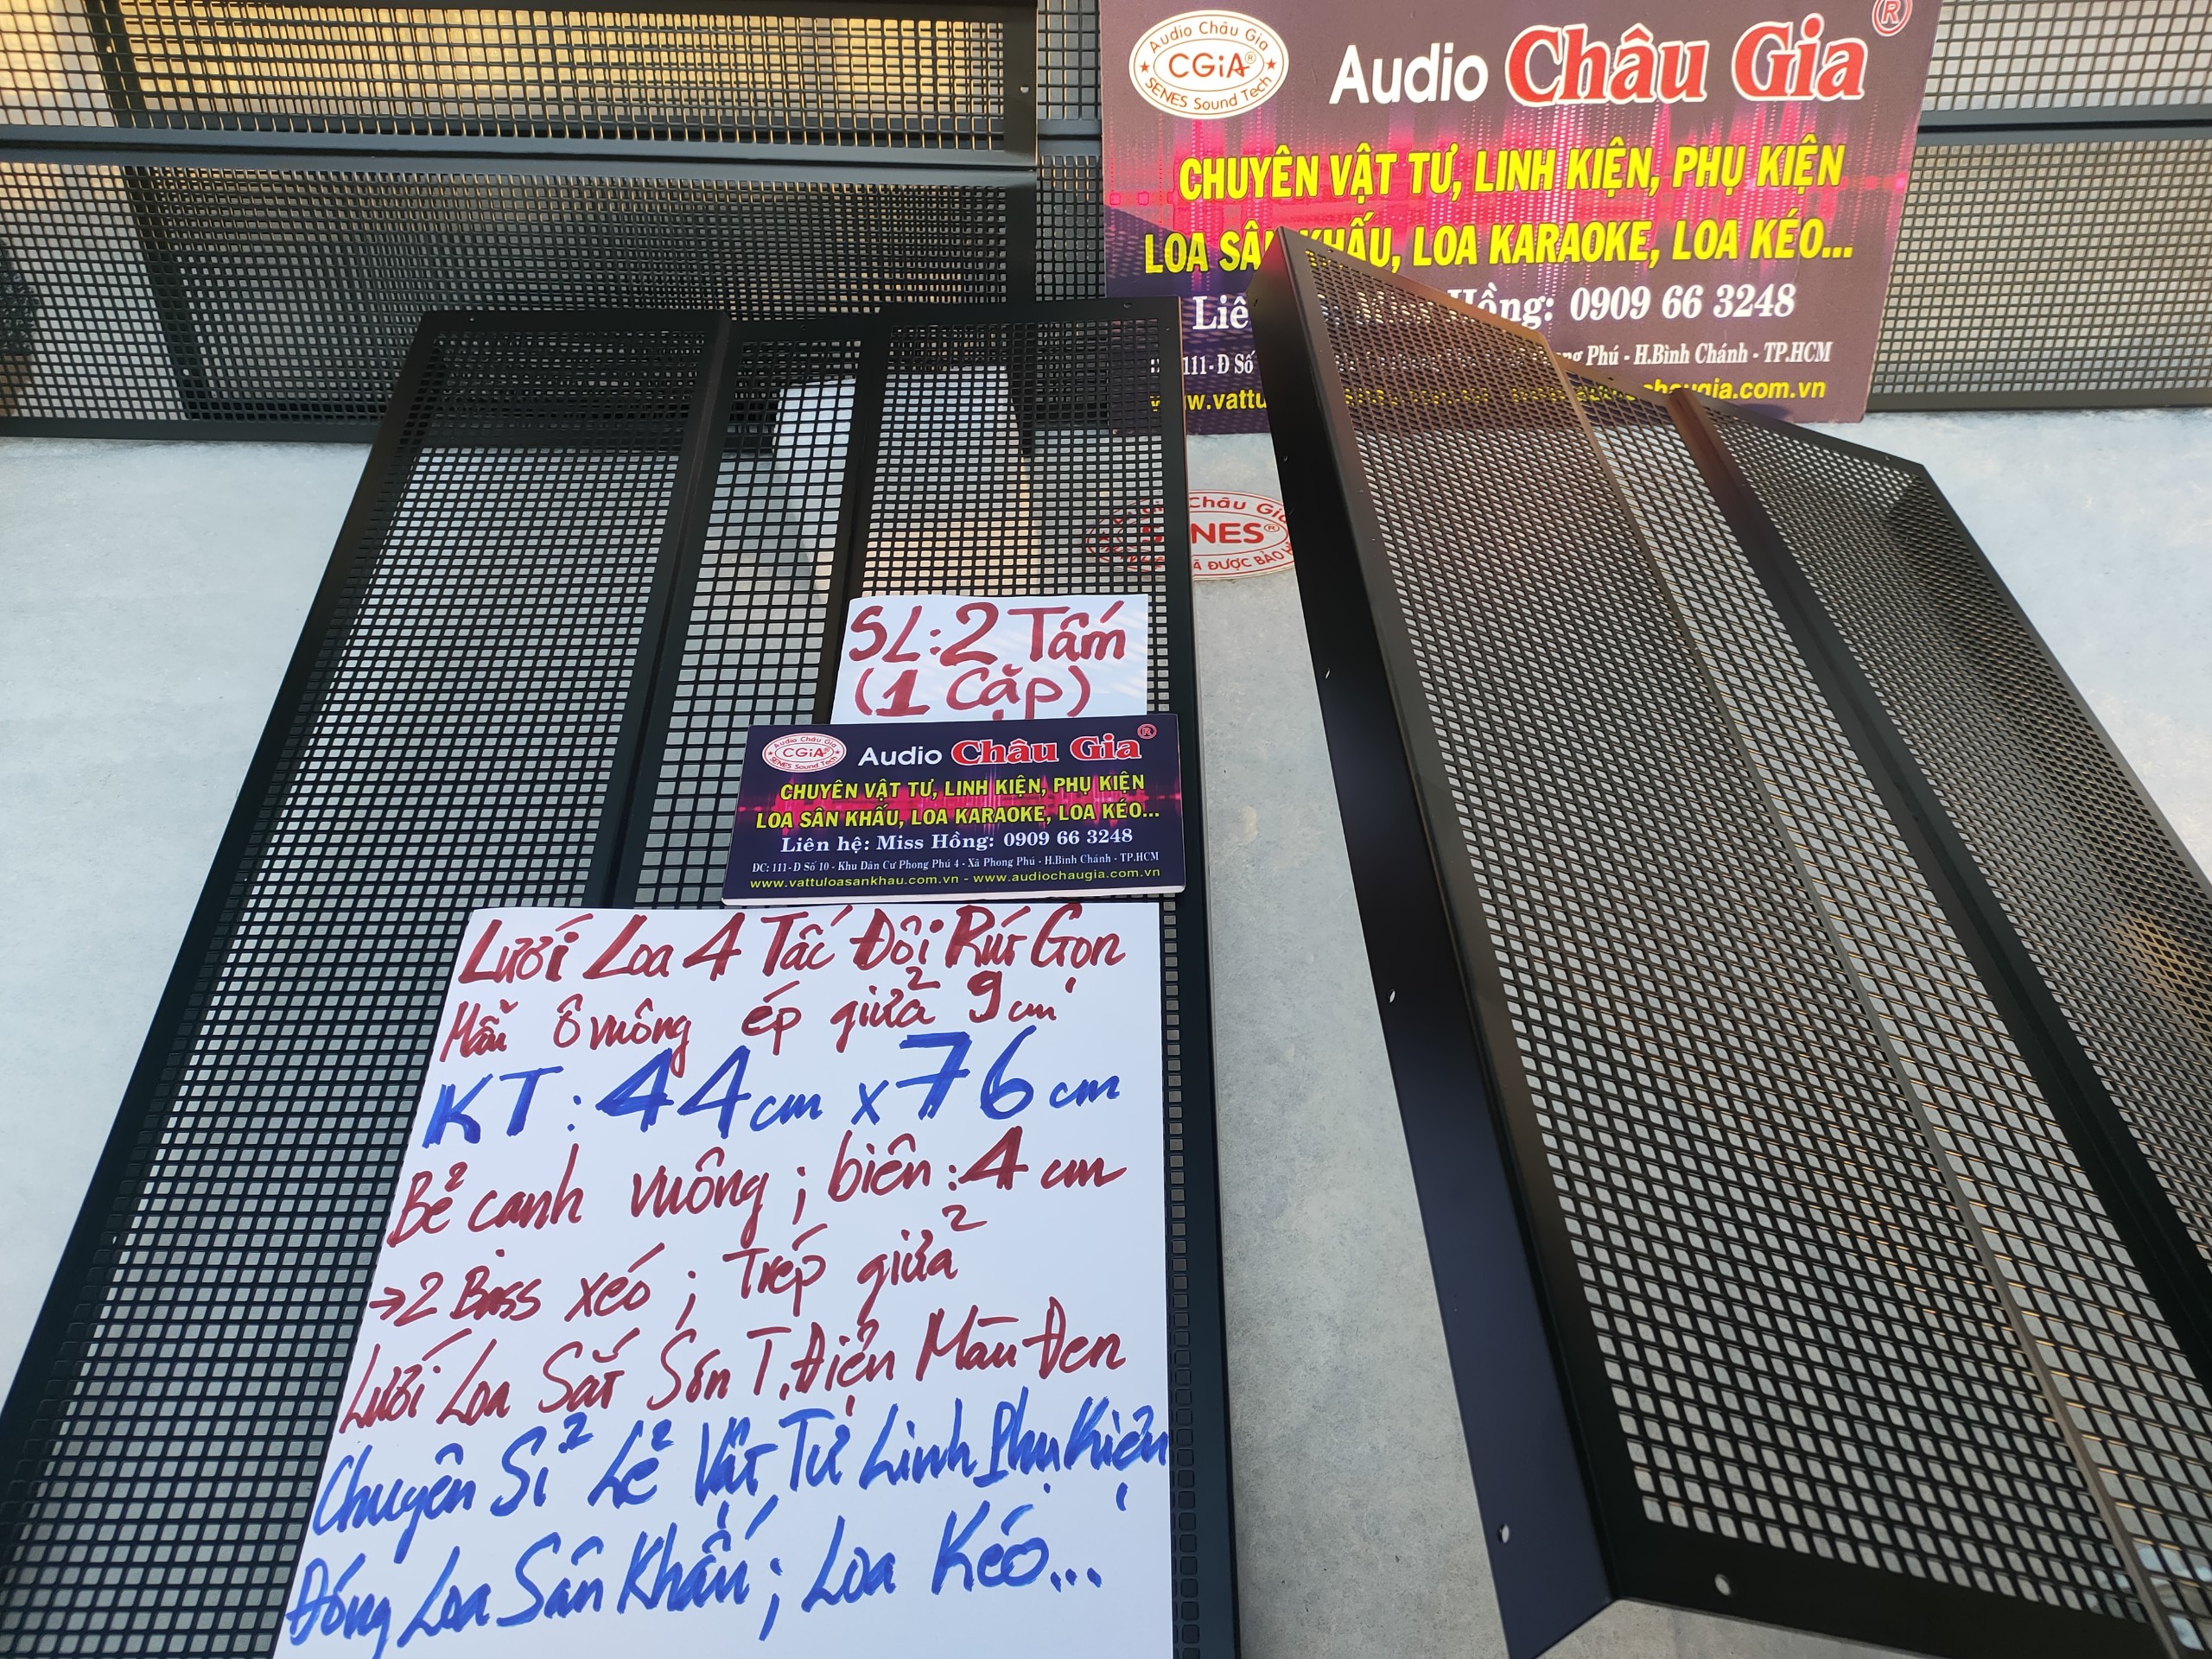 Audio Châu Gia
CGiA®
SENES Sound Tech
Audio Châu Gia ®
CHUYÊN VẬT TƯ, LINH KIỆN, PHỤ KIỆN
LOA SÂN KHẤU, LOA KARAOKE, LOA KÉO...
Hồng: 0909 66 3248
111-Đ Số
Phú - H.Bình Chánh - TP.HCM
chaugia.com.vn
Châu Gia
NES®
ĐƯỢC BẢO
SL: 2 Tấm
(1 Cặp)
Audio Châu Gia
CGiA®
SENES Sound Tech
Audio Châu Gia ®
CHUYÊN VẬT TƯ, LINH KIỆN, PHỤ KIỆN
LOA SÂN KHẤU, LOA KARAOKE, LOA KÉO...
Liên hệ: Miss Hồng: 0909 66 3248
ĐC: 111-Đ Số 10 - Khu Dân Cư Phong Phú 4 - Xã Phong Phú - H.Bình Chánh - TP.HCM
www.vattuloasankhau.com.vn - www.audiochaugia.com.vn
Lưới Loa 4 Tấc Đôi Rút Gọn
Mẫu ô vuông ép giữa 9 cm
KT: 44 cm x 76 cm
Bẻ cạnh vuông; biên: 4 cm
→ 2 Bass xéo; Trép giữa
Lưới Loa Sắt Sơn T.Điện Màu Đen
Chuyên Sỉ Lẻ Vật Tư Linh Phụ Kiện
Đóng Loa Sân Khấu; Loa Kéo...